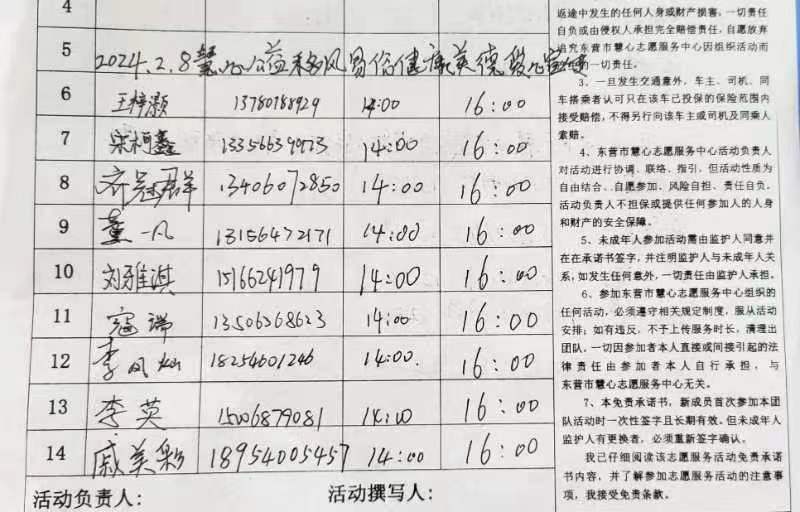 4
5 2024.2.8慧心公益移风易俗健康美德
6 王梓灏 13780188929 14:00 16:00
7 宋柯鑫 13356639723 14:00 16:00
8 齐冠群 13406072850 14:00 16:00
9 董一凡 13156472171 14:00 16:00
10 刘雅淇 15166241979 14:00 16:00
11 寇瑞 13506368623 14:00 16:00
12 李凤灿 18254601246 14:00 16:00
13 李英 15006879081 14:00 16:00
14 戚美彩 18954005457 14:00 16:00
活动负责人: 活动撰写人:
返途中发生的任何人身或财产损害,一切责任
自负或由侵权人承担完全赔偿责任,自愿放弃
追究东营市慧心志愿服务中心因组织活动而
的一切责任。
3、一旦发生交通意外,车主、司机、同
车搭乘者认可只在该车已投保的保险范围内
接受赔偿,不得另行向该车主或司机及同乘人
索赔。
4、东营市慧心志愿服务中心活动负责人
对活动进行协调、联络、指引,但活动性质为
自由结合、自愿参加、风险自担、责任自负,
活动负责人不担保或提供任何参加人的人身
和财产的安全保障。
5、未成年人参加活动需由监护人同意并
在在承诺书签字,并注明监护人与未成年人关
系,如发生任何意外,一切责任由监护人承担。
6、参加东营市慧心志愿服务中心组织的
任何活动,必须遵守相关规定制度,服从活动
安排;如有违反,不予上传服务时长,清理出
团队,一切因参加者本人直接或间接引起的法
律责任由参加者本人自行承担,与
东营市慧心志愿服务中心无关。
7、本免责承诺书,新成员首次参加本团
队活动时一次性签字且长期有效。但未成年人
监护人有更换者,必须重新签字确认。
我已仔细阅读该志愿服务活动免责承诺
书内容,并了解参加志愿服务活动的注意事
项,我接受免责条款。